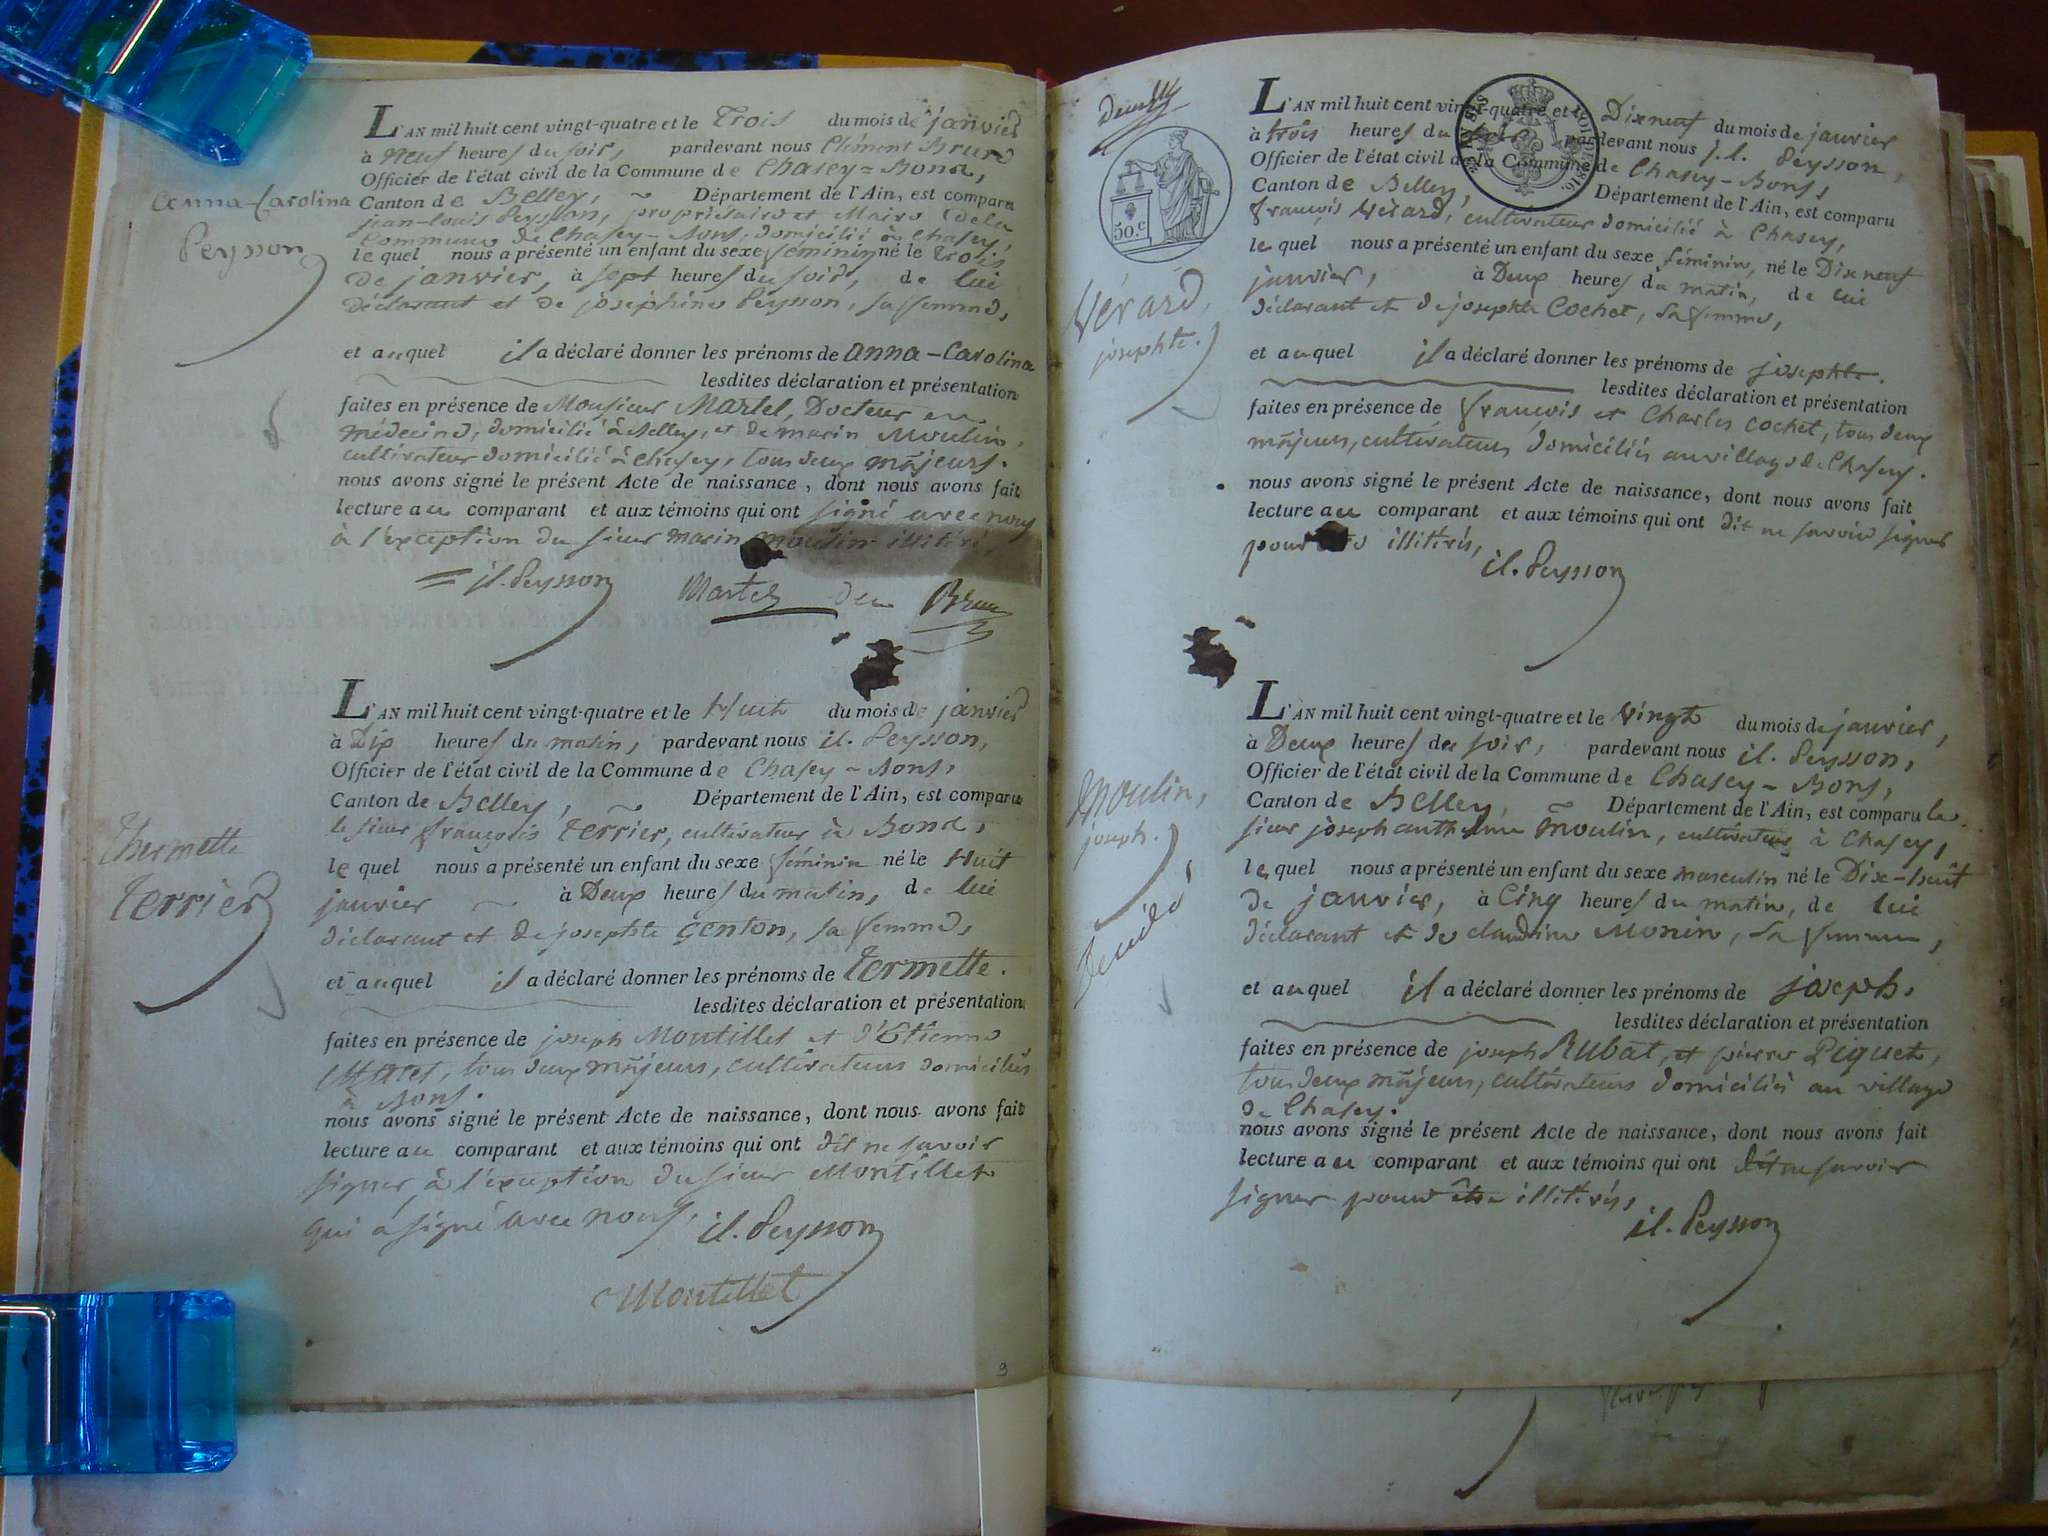 Anna-Carolina
Peysson
L'AN mil huit cent vingt-quatre et le Trois du mois de janvier
à neuf heures du soir, pardevant nous Clément Brun
Officier de l'état civil de la Commune de Chasey-Bons,
Canton de Belley, Département de l'Ain, est comparu
jean-louis Peysson, propriétaire et Maire de la
Commune de Chasey-Bons, domicilié à Chasey,
le quel nous a présenté un enfant du sexe féminin né le trois
de janvier, à sept heures du soir, de lui
déclarant et de josephine Peysson, sa femme,
et auquel il a déclaré donner les prénoms de anna-Carolina
lesdites déclaration et présentation
faites en présence de Monsieur Martel, Docteur en
médecine, domicilié à Belley, et de marin Moulin,
cultivateur domicilié à Chasey, tous deux majeurs.
nous avons signé le présent Acte de naissance, dont nous avons fait
lecture au comparant et aux témoins qui ont signé avec nous
à l'exception du sieur marin moulin illitéré,
j.l. Peysson Martel Brun
Thermette
terrier
L'AN mil huit cent vingt-quatre et le Huit du mois de janvier
à Dix heures du matin, pardevant nous j.l. Peysson,
Officier de l'état civil de la Commune de Chasey-Bons,
Canton de Belley, Département de l'Ain, est comparu
le sieur françois terrier, cultivateur à Bons,
le quel nous a présenté un enfant du sexe féminin né le Huit
janvier à Deux heures du matin, de lui
déclarant et de josephte genton, sa femme,
et auquel il a déclaré donner les prénoms de termette.
lesdites déclaration et présentation
faites en présence de joseph Montillet et d'Etienne
tous deux majeurs, cultivateurs domiciliés
à Bons.
nous avons signé le présent Acte de naissance, dont nous avons fait
lecture au comparant et aux témoins qui ont dit ne savoir
signer, à l'exception du sieur Montillet
qui a signé avec nous, j.l. Peysson
Montillet
9
50.c
Vérard,
josephte.
L'AN mil huit cent vingt-quatre et le Dix neuf du mois de janvier
à trois heures du soir, pardevant nous j.l. Peysson,
Officier de l'état civil de la Commune de Chasey-Bons,
Canton de Belley, Département de l'Ain, est comparu
françois Vérard, cultivateur domicilié à Chasey,
le quel nous a présenté un enfant du sexe féminin, né le Dix neuf
janvier, à Deux heures du matin, de lui
déclarant et de josephte Cochet, sa femme,
et auquel il a déclaré donner les prénoms de josephte.
lesdites déclaration et présentation
faites en présence de françois et Charles Cochet, tous deux
majeurs, cultivateurs domiciliés au village de Chasey.
nous avons signé le présent Acte de naissance, dont nous avons fait
lecture au comparant et aux témoins qui ont dit ne savoir signer
pour illitérés,
j.l. Peysson
Moulin,
joseph.
décédé
L'AN mil huit cent vingt-quatre et le Vingt du mois de janvier,
à Deux heures du soir, pardevant nous j.l. Peysson,
Officier de l'état civil de la Commune de Chasey-Bons,
Canton de Belley, Département de l'Ain, est comparu le
sieur joseph anthelme Moulin, cultivateur à Chasey,
le quel nous a présenté un enfant du sexe masculin né le Dix-huit
de janvier, à Cinq heures du matin, de lui
déclarant et de claudine Monin, sa femme,
et auquel il a déclaré donner les prénoms de joseph,
lesdites déclaration et présentation
faites en présence de joseph Rubat, et pierre Piguet,
tous deux majeurs, cultivateurs domiciliés au village
de Chasey.
nous avons signé le présent Acte de naissance, dont nous avons fait
lecture au comparant et aux témoins qui ont dit ne savoir
signer pour être illitérés,
j.l. Peysson